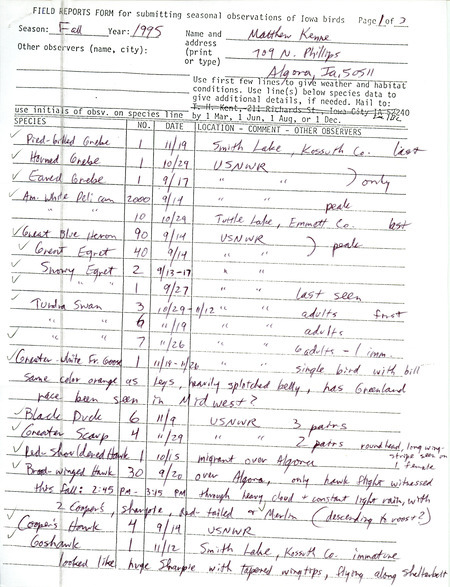 FIELD REPORTS FORM for submitting seasonal observations of Iowa birds Page 1 of 2
Season: Fall Year: 1995 Name and address (print or type) Matthew Kenne
Other observers (name, city): 709 N. Phillips
Algona, Ia, 50511
Use first few lines to give weather and habitat
conditions. Use line(s) below species data to
give additional details, if needed. Mail to:
T. H. Kent, 211 Richards St., Iowa City, IA 52240
use initials of obsv. on species line by 1 Mar, 1 Jun, 1 Aug, or 1 Dec.
SPECIES NO. DATE LOCATION - COMMENT - OTHER OBSERVERS
Pied-billed Grebe 1 11/19 Smith Lake, Kossuth Co. last
Horned Grebe 1 10/29 USNWR
Eared Grebe 1 9/17 " " ) only
Am. White Pelican 2000 9/14 " " peak
" " 10 10/29 Tuttle Lake, Emmett Co. last
Great Blue Heron 90 9/14 USNWR
Great Egret 40 9/14 " " ) peak
Snowy Egret 2 9/13-17 " "
" " 1 9/27 " " last seen
Tundra Swan 3 10/29-11/12 " " adults first
" 6 11/19 " " adults
" 7 11/26 " " 6 adults - 1 imm.
Greater White Fr. Goose 1 11/18-11/26 " " single bird with bill
same color orange as legs, heavily splotched belly, has Greenland
race been seen in Midwest?
Black Duck 6 11/9 USNWR 3 pairs
Greater Scaup 4 11/29 " " 2 pairs round head, long wing-
stripe seen on
1 female
Red-Shouldered Hawk 1 10/15 migrant over Algona
Broad-winged Hawk 30 9/20 over Algona, only hawk flight witnessed
this fall: 2:45 PM - 3:45 PM through heavy cloud + constant light rain, with
2 Cooper's, sharpie, Red-tailed or Merlin (descending to roost?)
Cooper's Hawk 4 9/14 USNWR
Goshawk 1 11/12 Smith Lake, Kossuth Co. immature
looked like huge Sharpie with tapered wingtips, flying along shelterbelt